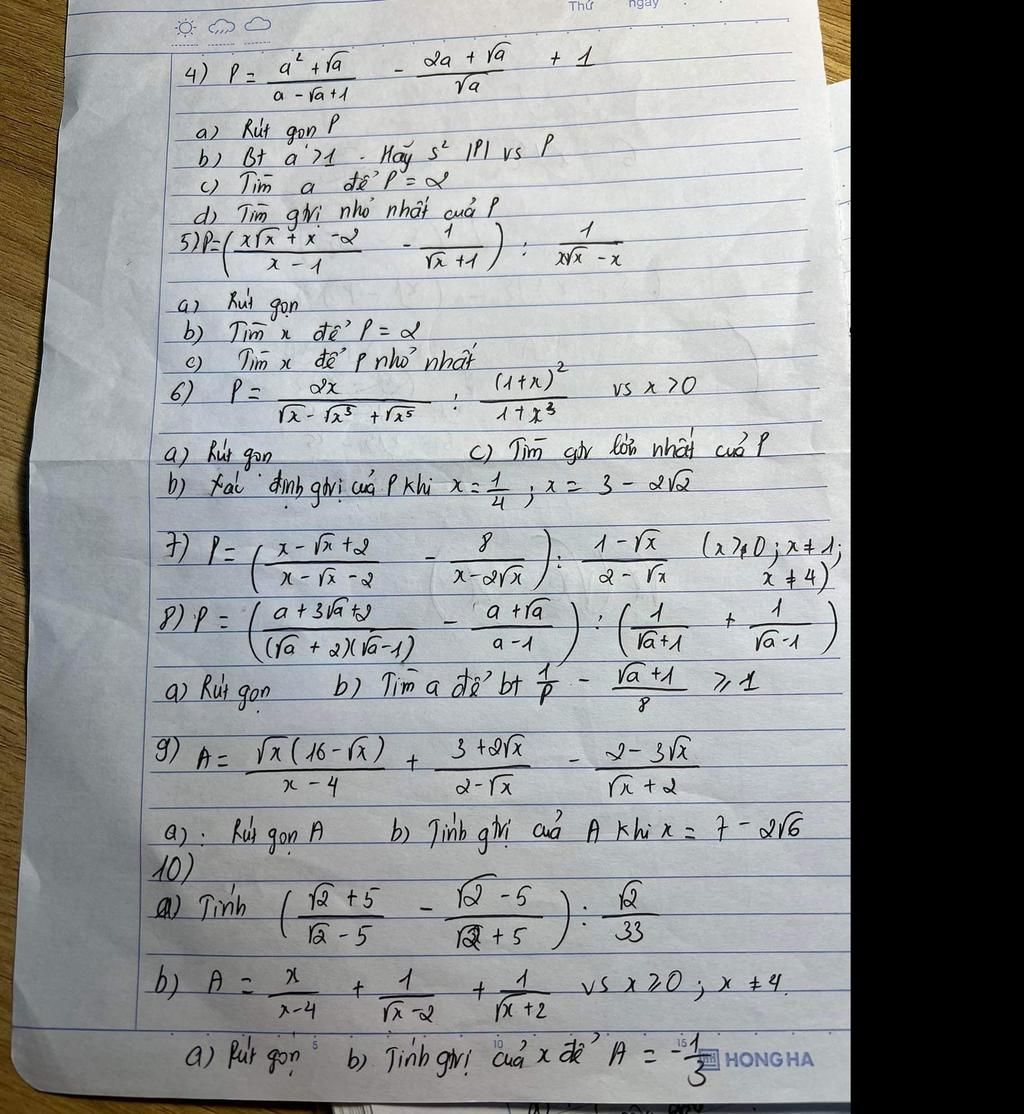 Thứ ngày
4) P = \frac{a² + √a}{a - √a + 1} - \frac{2a + √a}{√a} + 1
a) Rút gọn P
b) Bt a > 1. Hãy s² |P| vs P
c) Tìm a để P = 2
d) Tìm gtrị nhỏ nhất của P
5) P = (\frac{x√x + x - 2}{x - 1} - \frac{1}{√x + 1}) : \frac{1}{x√x - x}
a) Rút gọn
b) Tìm x để P = 2
c) Tìm x để P nhỏ nhất
6) P = \frac{2x}{√x - √x³ + √x⁵} : \frac{(1+x)²}{1+x³} vs x > 0
a) Rút gọn c) Tìm gtr lớn nhất của P
b) Xác định gtrị của P khi x = \frac{1}{4} ; x = 3 - 2√2
7) P = (\frac{x - √x + 2}{x - √x - 2} - \frac{8}{x - 2√x}) : \frac{1 - √x}{2 - √x} (x > 0 ; x ≠ 1 ;
x ≠ 4)
8) P = (\frac{a + 3√a + 2}{(√a + 2)(√a - 1)} - \frac{a + √a}{a - 1}) : (\frac{1}{√a + 1} + \frac{1}{√a - 1})
a) Rút gọn b) Tìm a để bt \frac{1}{P} - \frac{√a + 1}{8} ≥ 1
9) A = \frac{√x(16 - √x)}{x - 4} + \frac{3 + 2√x}{2 - √x} - \frac{2 - 3√x}{√x + 2}
a) : Rút gọn A b) Tính gtrị của A khi x = 7 - 2√6
10)
a) Tính (\frac{√2 + 5}{√2 - 5} - \frac{√2 - 5}{√2 + 5}) : \frac{√2}{33}
b) A = \frac{x}{x - 4} + \frac{1}{√x - 2} + \frac{1}{√x + 2} vs x ≥ 0 ; x ≠ 4.
a) Rút gọn b) Tính gtrị của x để A = -\frac{1}{3}
5 10 15 HONG HA